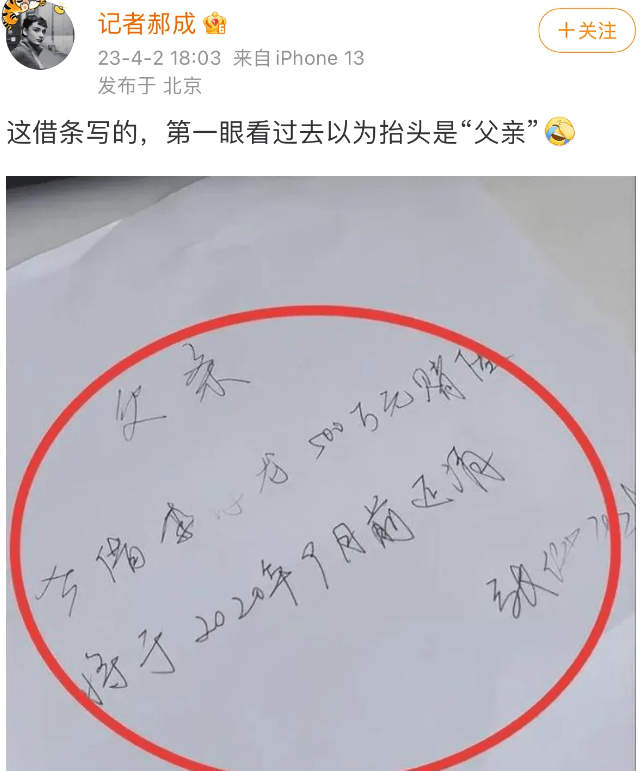 记者郝成
+关注
23-4-2 18:03 来自 iPhone 13
发布于 北京
这借条写的，第一眼看过去以为抬头是“父亲”
欠条
今借李 龙500万元赌债
将于2020年9月前还清
张